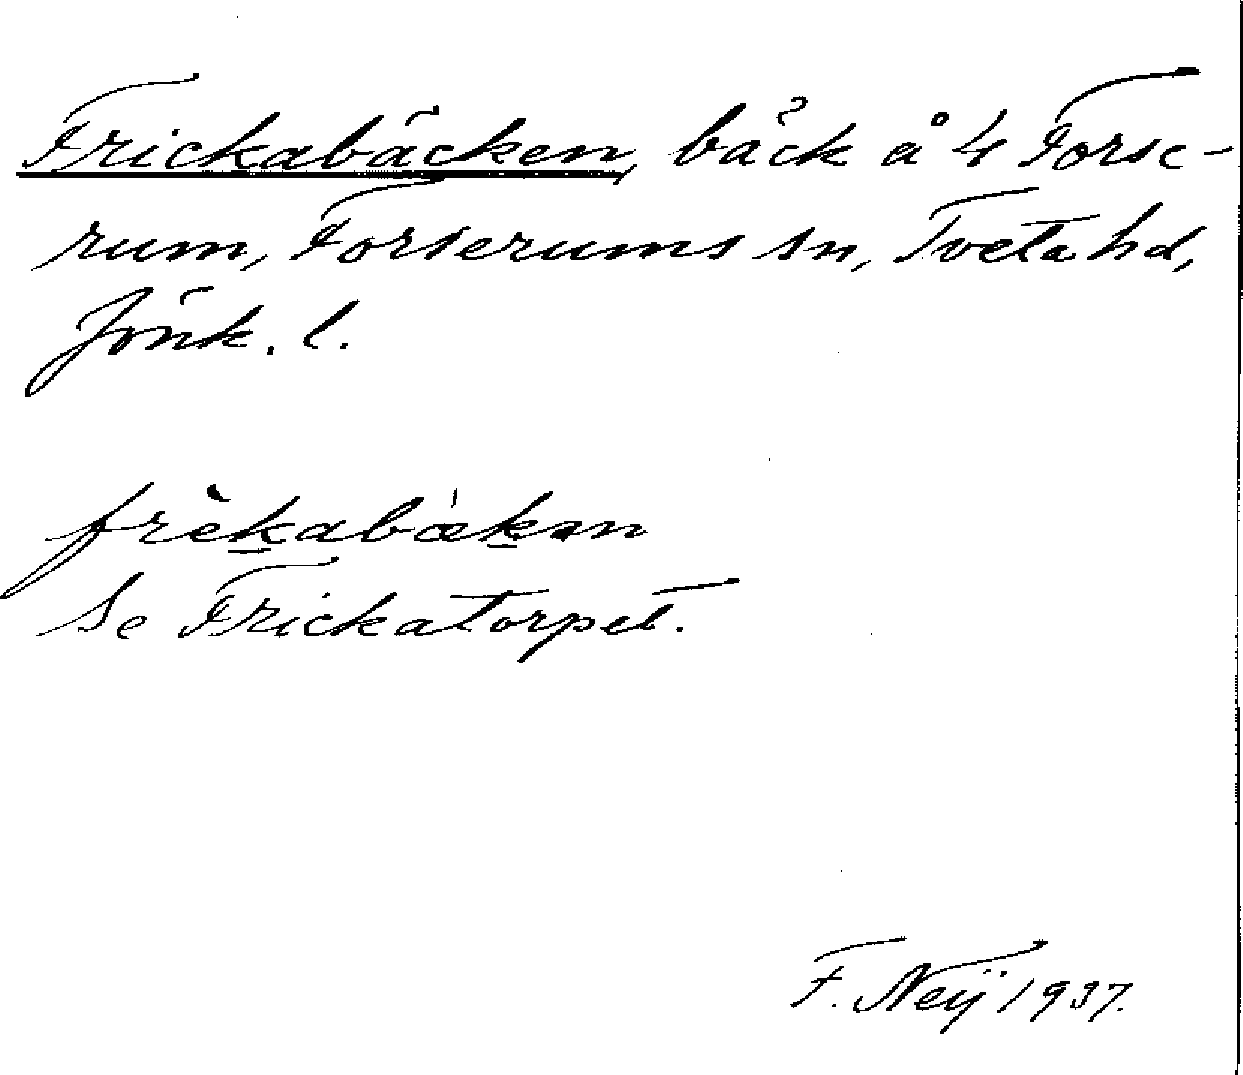 Frickabäcken, bäck å 4 Forse-
rum, Forserums sn, Tveta hd,
Jönk. l.
frèkabækən
Se Frickatorpet.
F. Neÿ 1937.